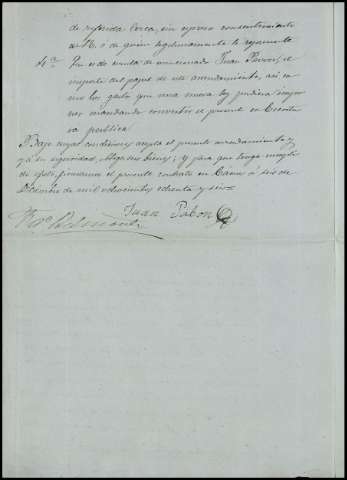 de referida Cerca, sin espreso consentimiento
de V. o de quien legitimamente le represente
4ª Por
de cuenta de mencionado Juan Pavon, el
importe del papel de este arrendamiento, así co
mo los gastos que una nueva ley pudiera impo
ner mandando convertir el presente en Escritu
ra publica
Bajo cuyas condiciones acepta el presente arrendamiento y
á su seguridad, obliga sus bienes; y para que tenga cumpli
do efecto, firmamos el presente contrato en á seis de
Diciembre de mil ochocientos ochenta y seis
Juan Pabon